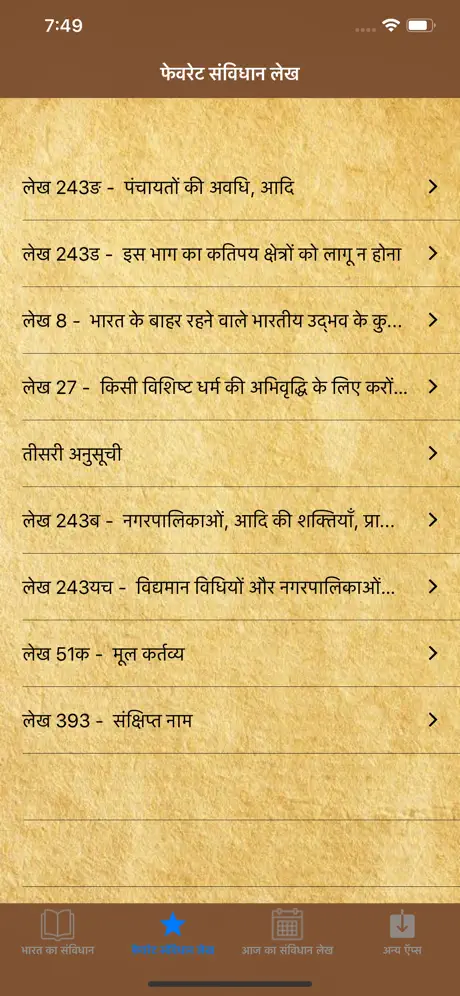 7:49
फेवरेट संविधान लेख
लेख 243ङ - पंचायतों की अवधि, आदि
लेख 243ड - इस भाग का कतिपय क्षेत्रों को लागू न होना
लेख 8 - भारत के बाहर रहने वाले भारतीय उद्‍भव के कु...
लेख 27 - किसी विशिष्ट धर्म की अभिवृद्धि के लिए करों...
तीसरी अनुसूची
लेख 243ब - नगरपालिकाओं, आदि की शक्तियाँ, प्रा...
लेख 243यच - विद्यमान विधियों और नगरपालिकाओं...
लेख 51क - मूल कर्तव्य
लेख 393 - संक्षिप्त नाम
भारत का संविधान
फेवरेट संविधान लेख
आज का संविधान लेख
अन्य ऍप्स